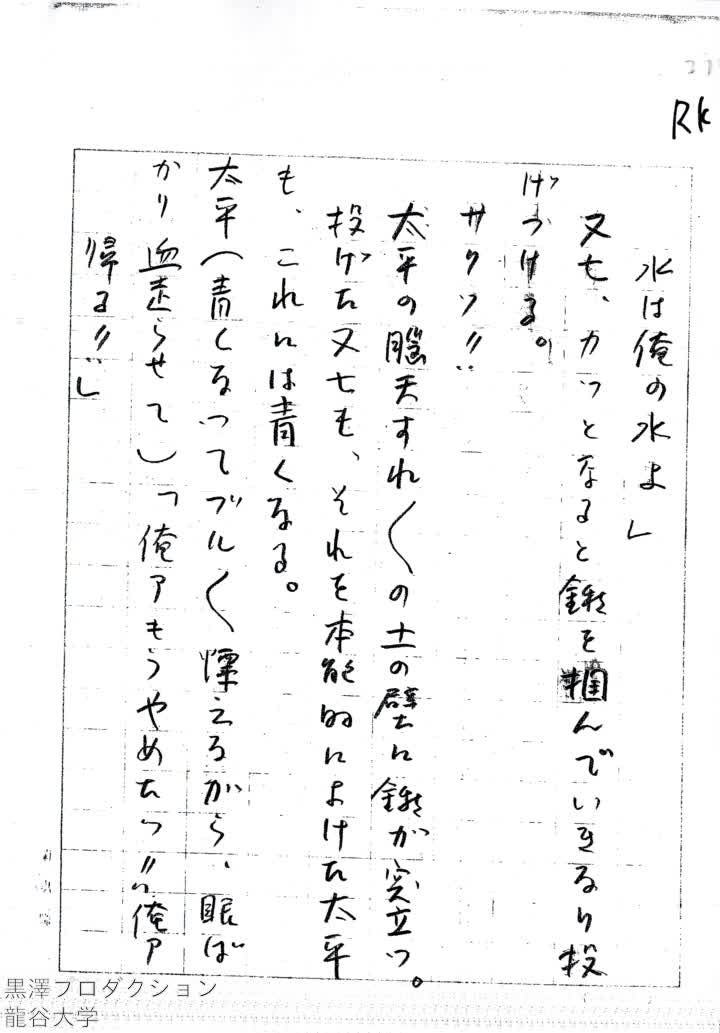 Rk
水は俺の水よ」
又七、カッとなると鍬を掴んでいきなり投
げつける。
サクッ!!
太平の脳天すれ〱の土の壁に鍬が突立つ。
投げた又七も、それを本能的によけた太平
も、これには青くなる。
太平(青くなってブル〱慄えながら、眼ば
かり血走らせて)「俺アもうやめたっ!!俺ア
帰る!!」
黒澤プロダクション
龍谷大学